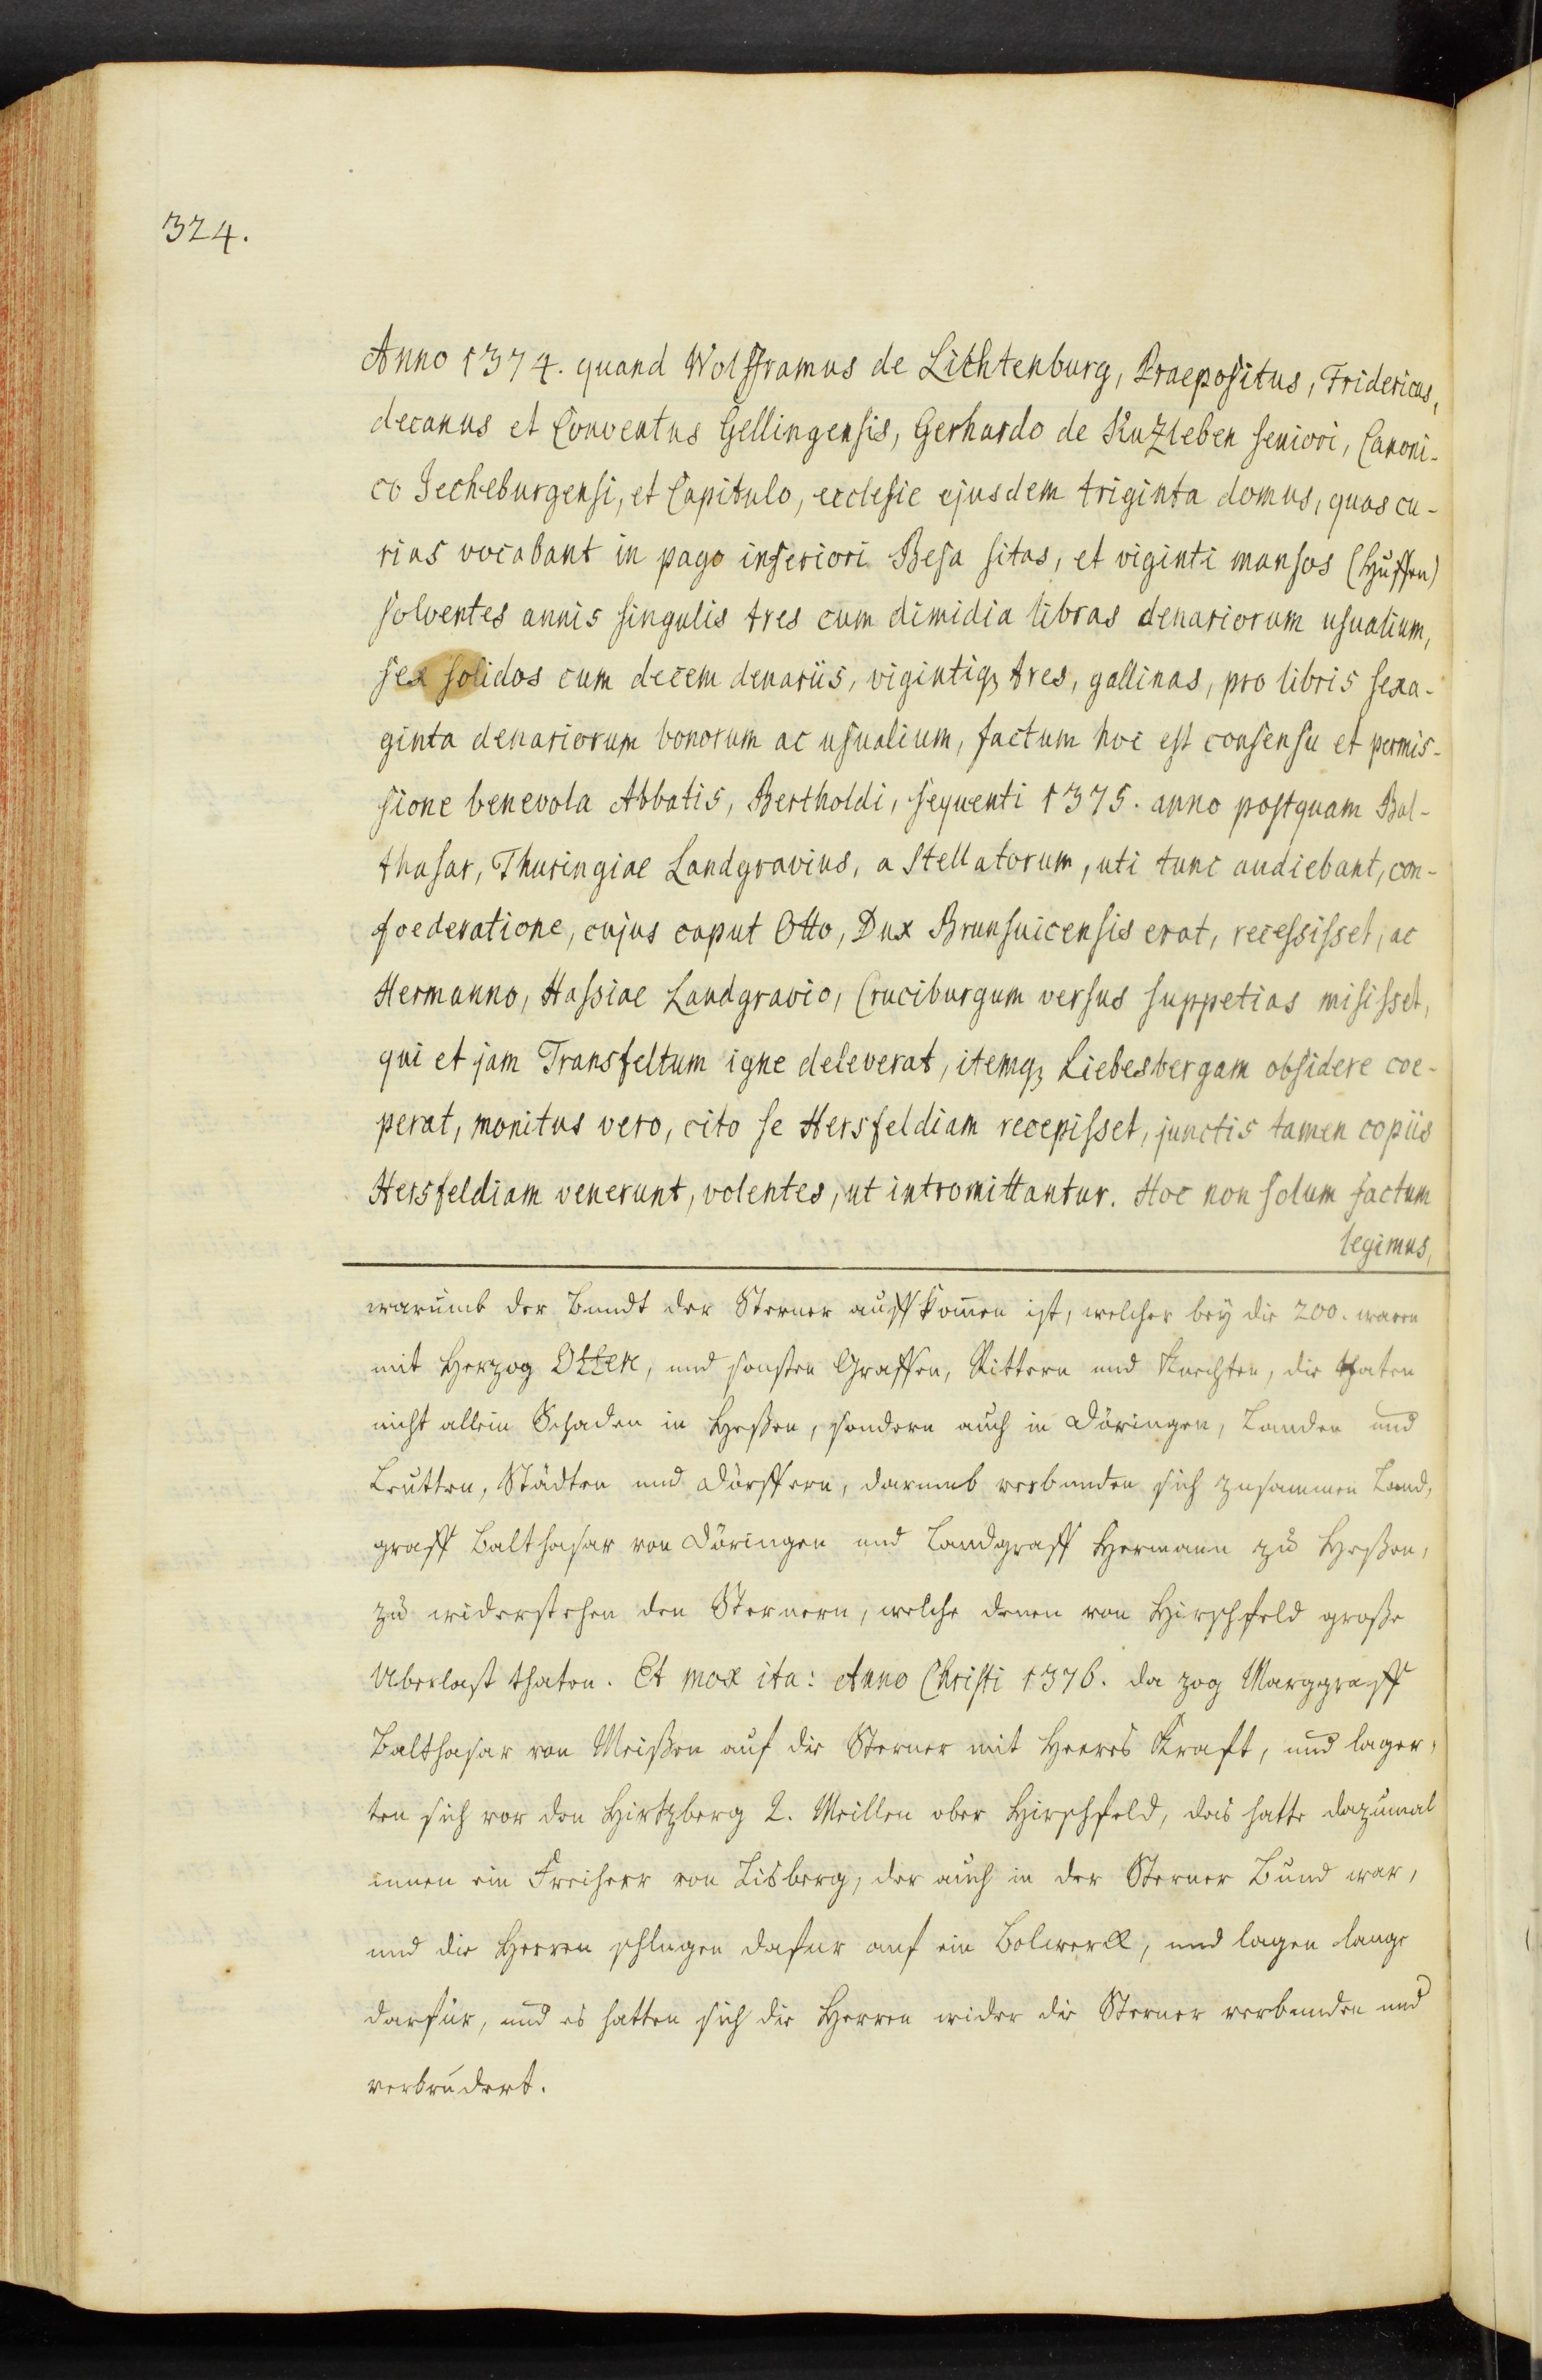 324.
Anno 1374. quand Wolfframus de Lichtenburg, Praepositus, Fridericus,
decanus et Conventus Gellingensis, Gerhardo de Kuzleben seniori, Canoni-
co Jecheburgensi, et Capitulo, ecclesie ejusdem triginta domus, quas cu-
rias vocabant in pago inferiori Besa sitas, et viginti mansos (Hüffen)
solventes annis singulis tres cum dimidia libras denariorum usualium,
sex solidos cum decem denariis, vigintiq3 tres, gallinas, pro libris sexa-
ginta denariorum bonorum ac usualium, factum hoc est consensu et permis-
sione benevola Abbatis, Bertholdi, sequenti 1375. anno postquam Bal-
thasar, Thuringiae Landgravius, a Stellatorum, uti tunc audiebant, con-
foederatione, cujus caput Otto, Dux Brunsuicensis erat, recessisset, ac
Hermanno, Hassiae Landgravio, Cruciburgum versus suppetias misisset,
qui et jam Transfeltum igne deleverat, itemq3 Liebesbergam obsidere coe-
perat, monitus vero, cito se Hersfeldiam recepisset, junctis tamen copiis
Hersfeldiam venerunt, volentes, ut intromittantur. Hoc non solum factum
legimus,
warumb der Bundt der Sterner auffkom̄en ist, welcher bey die 200. waren
mit Herzog Otten, und sonsten Graffen, Rittern und Knechten, die thaten
nicht allein Schaden in Heßen, sondern auch in Döringen, Landen und
Leutten, Städten und Dörffern, darumb verbunden sich zusammen Land-
graff Balthasar von Döringen und Landgraff Hermann zu Heßen,
zu widerstehen den Sternern, welche denen von Hirschfeld große
Uberlast thaten. Et mox ita: Anno Christi 1376. da zog Marggraff
Balthasar von Meißen auf die Sterner mit Heeres Kraft, und lager-
ten sich vor den Hirtzberg 2. Meillen ober Hirschfeld, das hatte dazumal
innen ein Freiherr von Lisberg, der auch in der Sterner Bund war,
und die Herren schlugen dafur auf ein Bolwerck, und lagen lange
darfür, und es hatten sich die Herren wider die Sterner verbunden und
verbrudert.